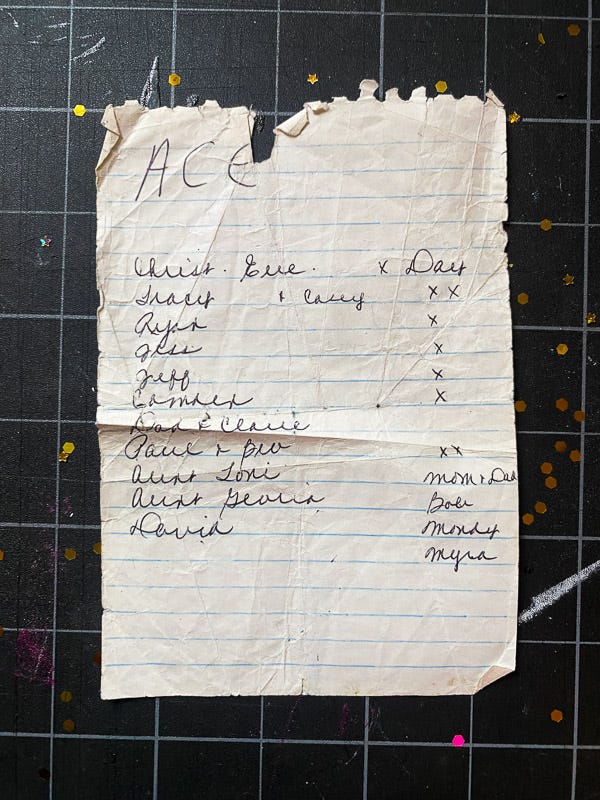 ACE
Christ. Eve. x Day
Tracy + Casey x x
Ryan x
Jess x
Jeff x
Camden x
Dad & Claire
Paul & Bev x x
Aunt Toni Mom + Dad
Aunt Georgia Bob
David Mondy
Myra